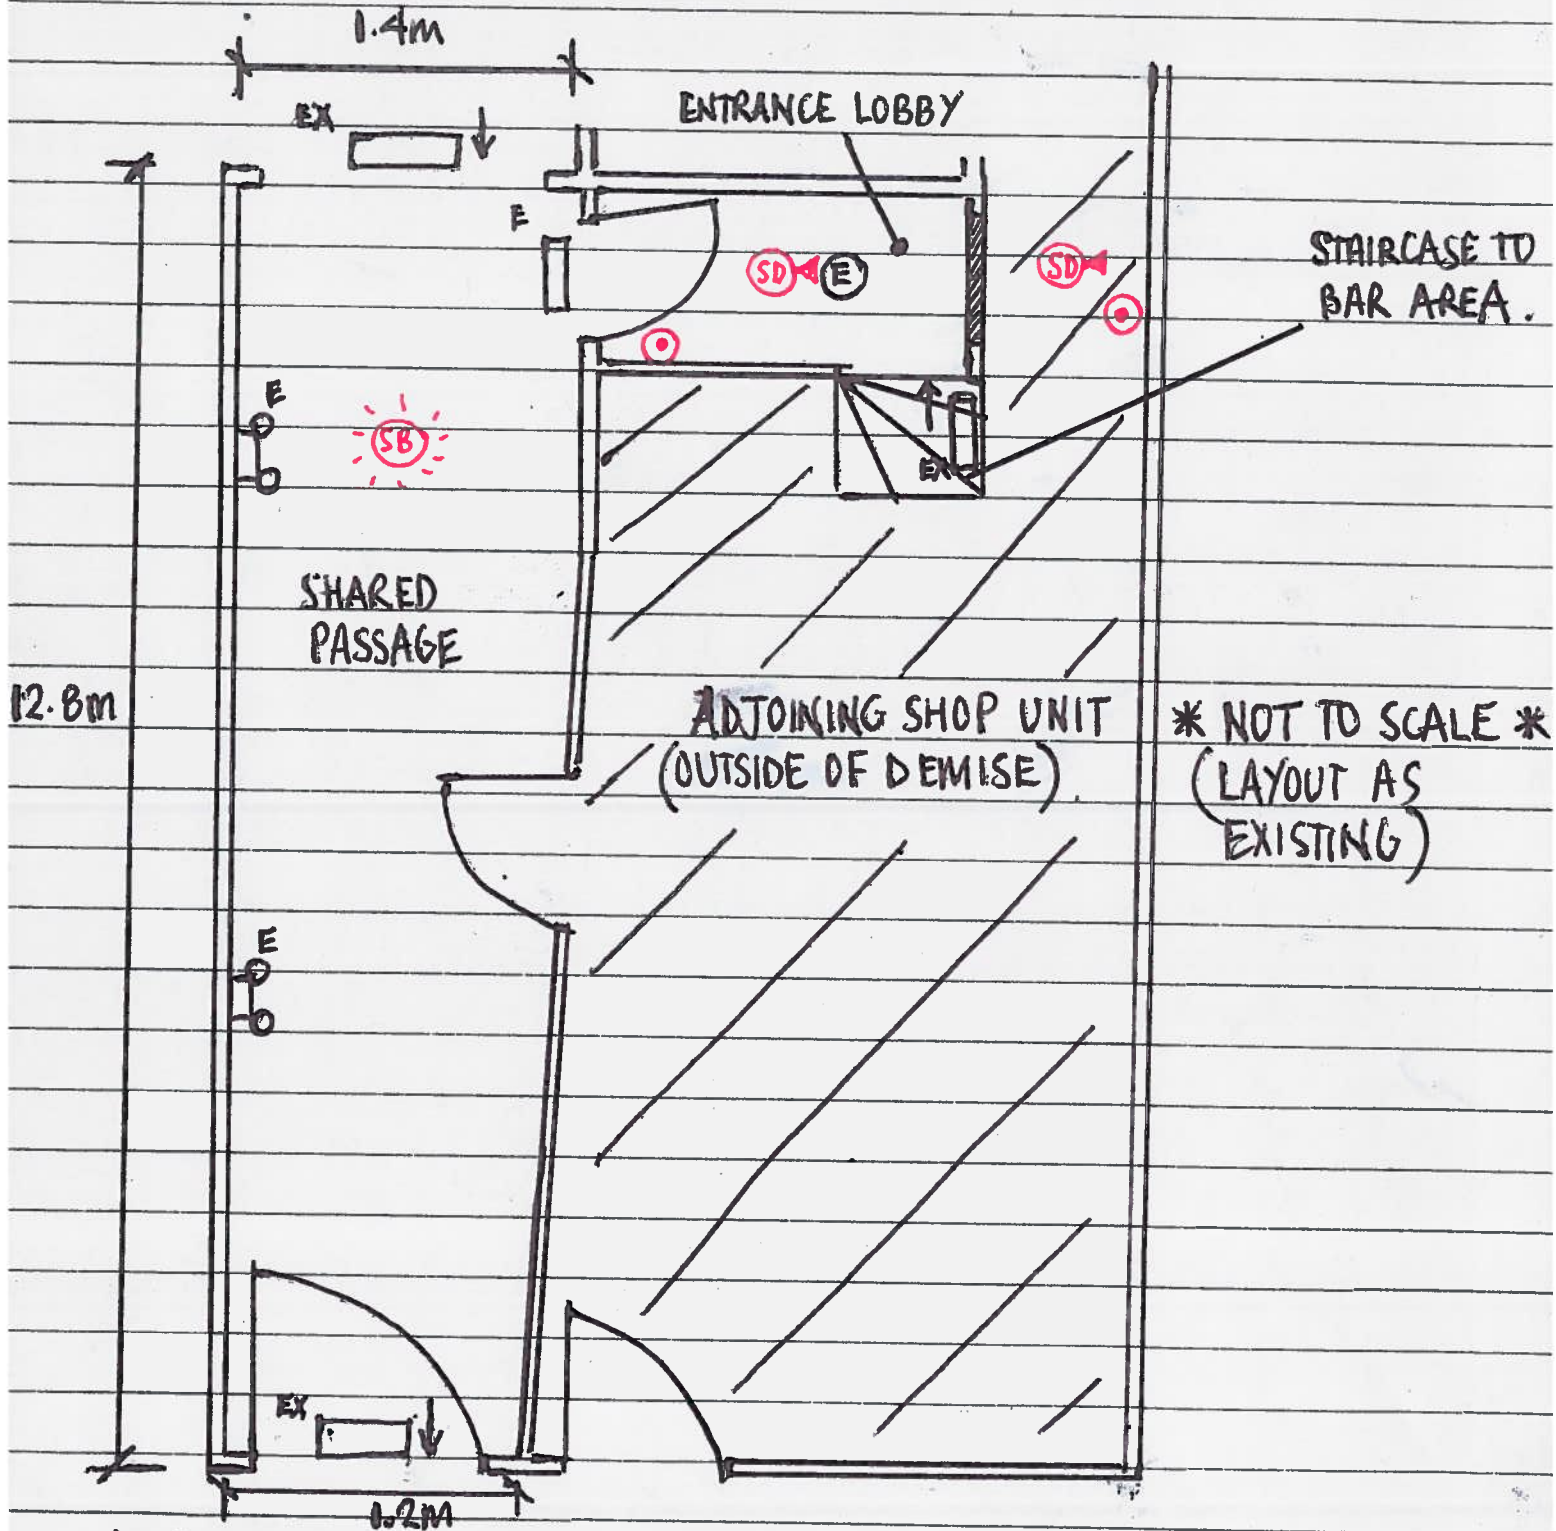 1.4m
EX
ENTRANCE LOBBY
E
SD
E
SD
STAIRCASE TO
BAR AREA.
E
SB
EX
SHARED
PASSAGE
12.8m
ADJOINING SHOP UNIT
(OUTSIDE OF DEMISE).
* NOT TO SCALE *
(LAYOUT AS
EXISTING)
E
EX
1.2M